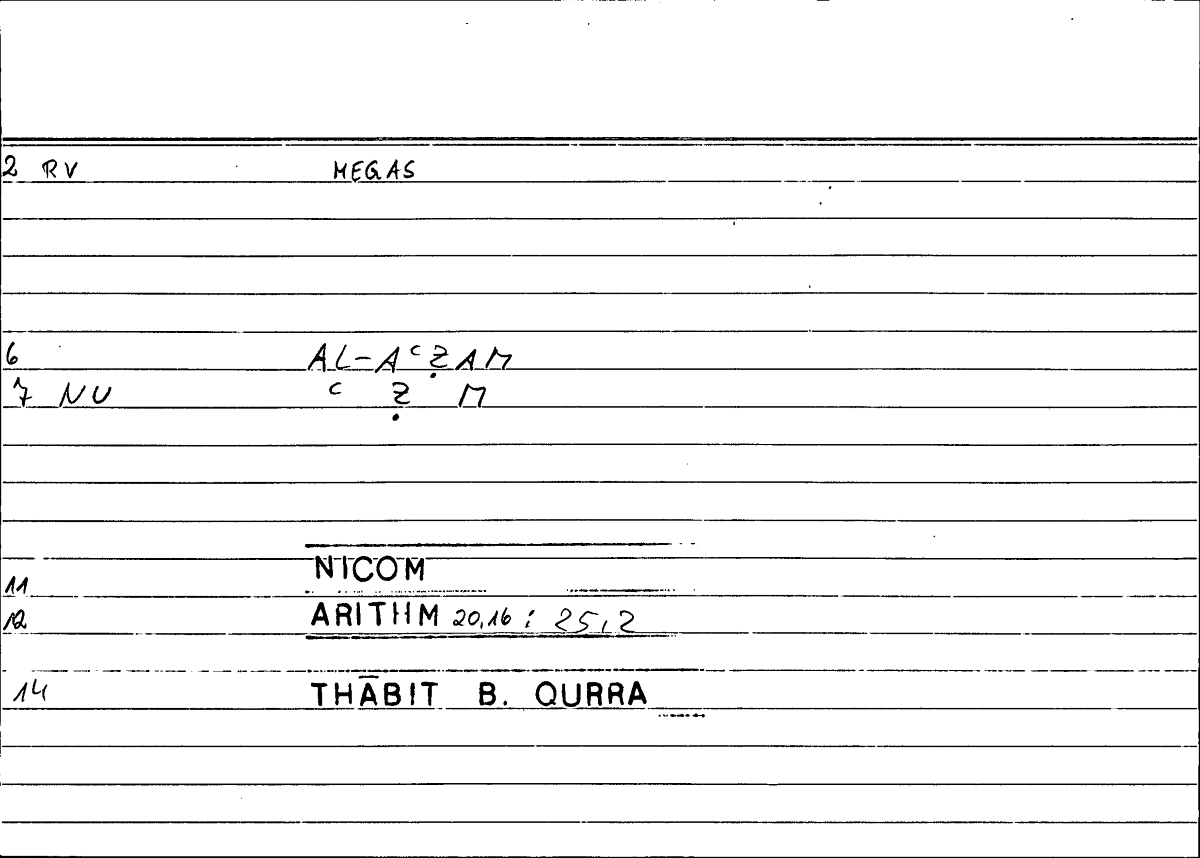 2 RV MEGAS
6 AL-AᶜẒAM
7 NU ᶜ Ẓ M
11 NICOM
12 ARITHM 20,16 ; 25,2
14 THĀBIT B. QURRA